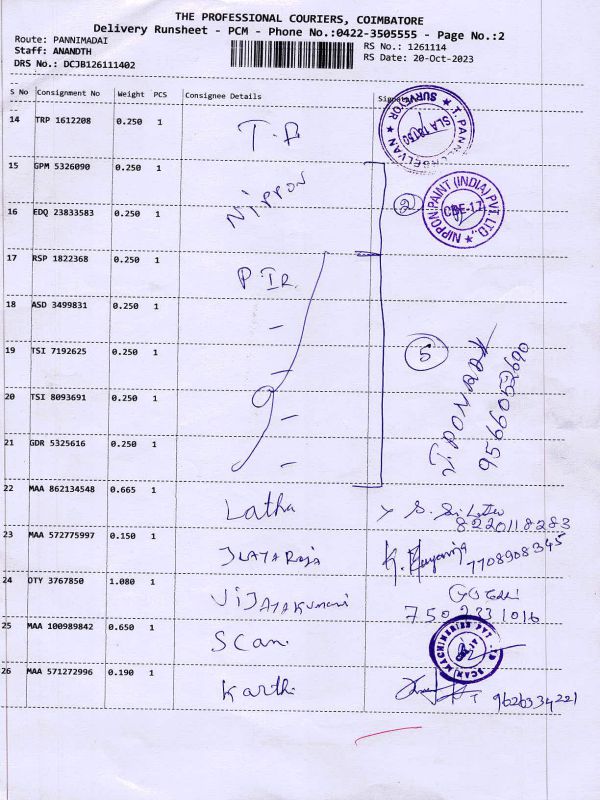 THE PROFESSIONAL COURIERS, COIMBATORE
Delivery Runsheet - PCM - Phone No.:0422-3505555 - Page No.:2
Route: PANNIMADAI
Staff: ANANDTH
DRS No.: DCJB126111402
RS No.: 1261114
RS Date: 20-Oct-2023
S No Consignment No Weight PCS Consignee Details Signature
14 TRP 1612208 0.250 1 T.P
SURVEYOR SLA
15 GPM 5326090 0.250 1 NIPPON
16 EDQ 23833583 0.250 1
2
NIPPON PAINT (INDIA) PVT. LTD., CBE-17
17 RSP 1822368 0.250 1 P IR
18 ASD 3499831 0.250 1 -
19 TSI 7192625 0.250 1 -
5
20 TSI 8093691 0.250 1 -
21 GDR 5325616 0.250 1 -
22 MAA 862134548 0.665 1 Latha
8220118283
23 MAA 572775997 0.150 1 ILAYARAJA 7708908345
24 OTY 3767850 1.080 1 VIJAYAKUMARI
7502331016
25 MAA 100989842 0.650 1 Scan
SCAN MACHINERIES PVT LTD
26 MAA 571272996 0.190 1 Karthi 9626334221